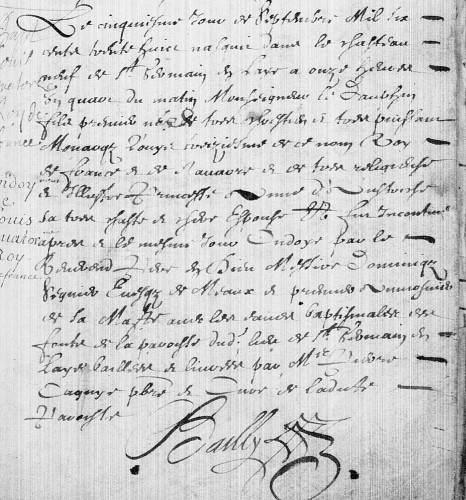 Le cinquiesme Jour de Septembre Mil six
cents trente huict nasquit dans le chasteau
neuf de St Germain en Laye a onze heures
Un quart du matin Monseigneur le Dauphin
filz premier né de tres chrestien & tres puissant
Monarq Louys treiziesme de ce nom Roy
de France & de Navarre & de tres religieuse
& Illustre Princesse Anne d'Austriche
sa tres chaste & fidele Espouse & fut Incontinent
apres & le mesme Jour Ondoyé par le
Reverend Pere en Dieu Messire Dominicq
Seguier Evesq de Meaux & premier Aumosnier
de sa Maté avec les eaues baptismales des
fonts de la paroche dud. lieu de St Germain en
Laye baillées & livrées par Mre Pierre
Cagnye pbre & Curé de ladicte
Paroche
Bailly
Ondoyé
de
Louis
Quatorze
Roy
de france